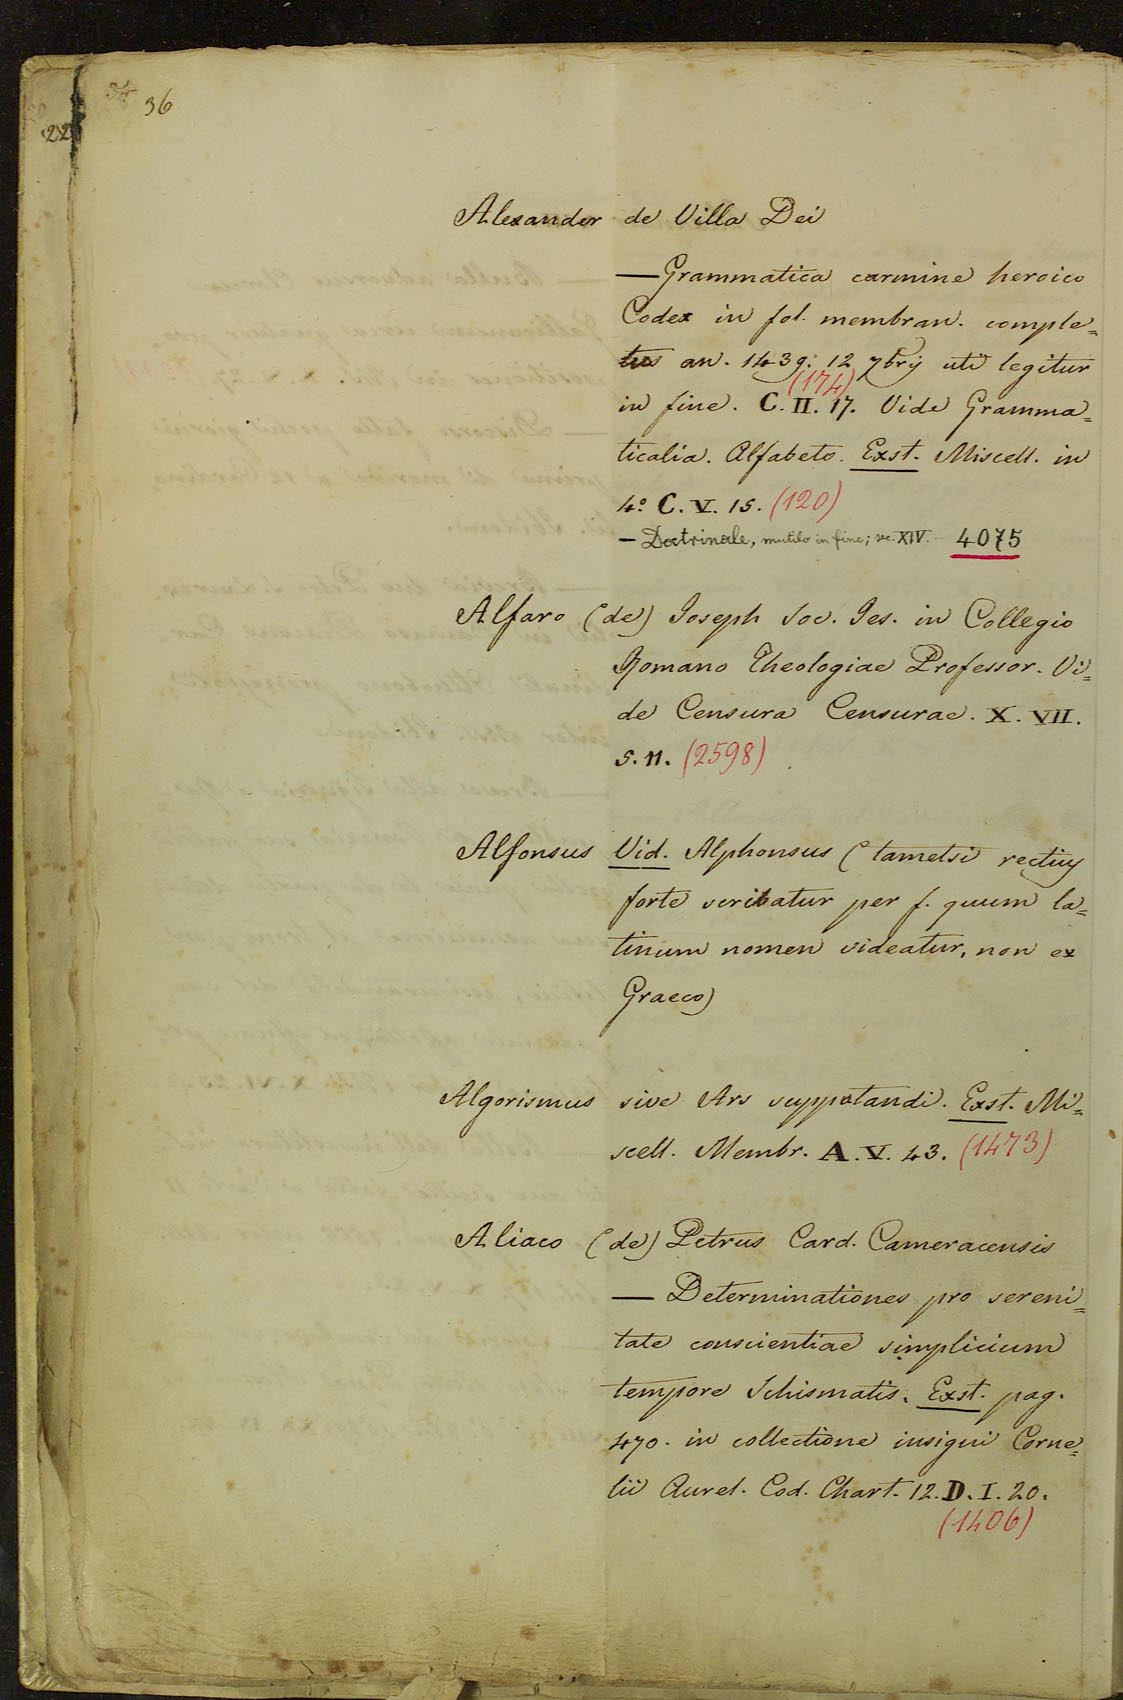 36
22
Alexander de Villa Dei
— Grammatica carmine heroico
Codex in fol. membran. comple=
tus an. 1439. 12 7brij uti legitur
(174)
in fine. C. II. 17. Vide Gramma=
ticalia. Alfabeto. Exst. Miscell. in
4º C. V. 15. (120)
— Doctrinale, mutilo in fine; sec. XIV. — 4075
Alfaro (de) Joseph Soc. Jes. in Collegio
Romano Theologiae Professor. Vi=
de Censura Censurae. X. VII.
5. 11. (2598)
Alfonsus Vid. Alphonsus (tametsi rectius
forte scribatur per f. quum la=
tinum nomen videatur, non ex
Graeco)
Algorismus sive Ars supputandi. Exst. Mi=
scell. Membr. A. V. 43. (1473)
Aliaco (de) Petrus Card. Cameracensis
— Determinationes pro sereni=
tate conscientiae simplicium
tempore Schismatis. Exst. pag.
470. in collectione insigni Corne=
lii Aurel. Cod. Chart. 12. D. I. 20.
(1406)